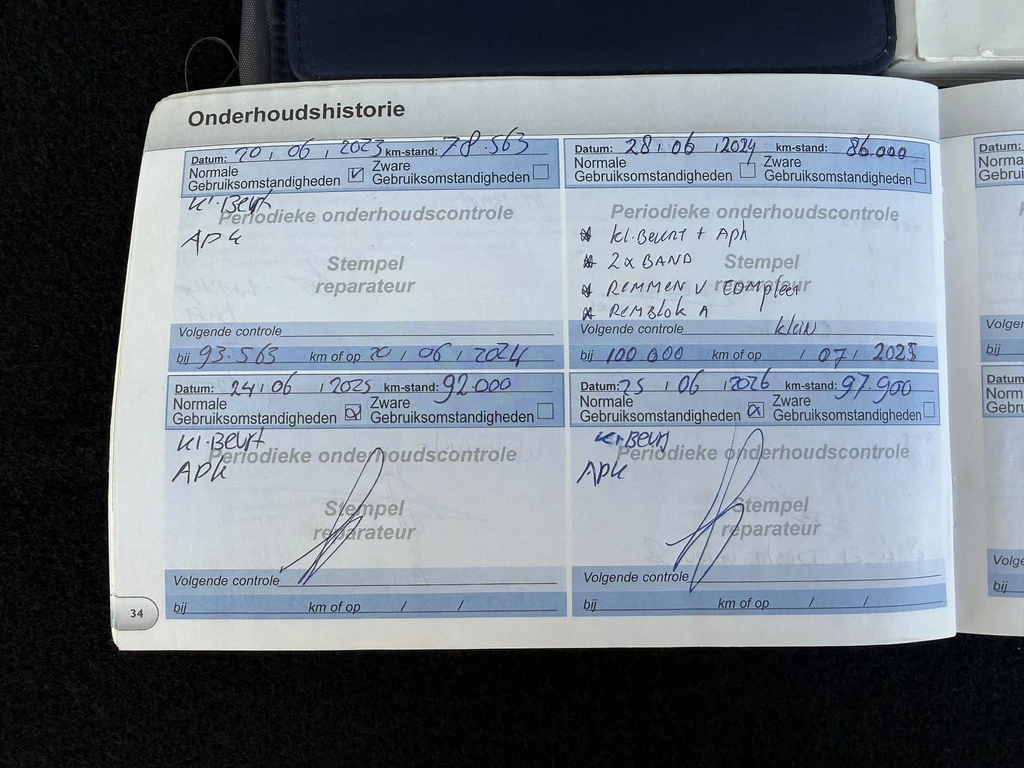 Onderhoudshistorie
Datum: 20 / 06 / 2023 km-stand: 78.563
Normale Gebruiksomstandigheden Zware Gebruiksomstandigheden
Kl. Beurt
Periodieke onderhoudscontrole
APK
Stempel
reparateur
Volgende controle
bij 93.563 km of op 20 / 06 / 2024
Datum: 28 / 06 / 2024 km-stand: 86.000
Normale Gebruiksomstandigheden Zware Gebruiksomstandigheden
Periodieke onderhoudscontrole
* kl. Beurt + Apk
* 2x BAND
Stempel
reparateur
* REMMEN V COMPleet
* REMblok A
Volgende controle klein
bij 100 000 km of op / 07 / 2025
Datum: 24 / 06 / 2025 km-stand: 92.000
Normale Gebruiksomstandigheden Zware Gebruiksomstandigheden
Kl. Beurt
Periodieke onderhoudscontrole
APK
Stempel
reparateur
Volgende controle
bij km of op / /
Datum: 25 / 06 / 2026 km-stand: 97.900
Normale Gebruiksomstandigheden Zware Gebruiksomstandigheden
Kl. Beurt
Periodieke onderhoudscontrole
APK
Stempel
reparateur
Volgende controle
bij km of op / /
34
Datum:
Norma
Gebru
Volger
bij
Datum:
Norm
Gebru
Volge
bij